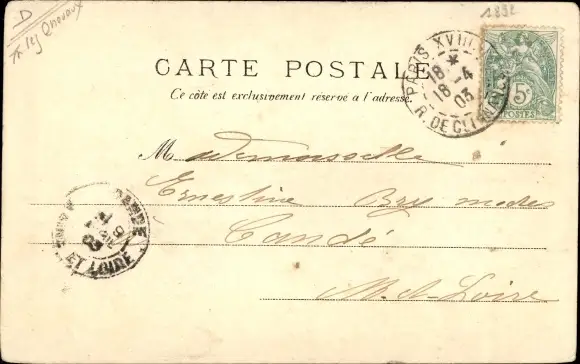 D
1892
CARTE POSTALE
Ce côté est exclusivement réservé a l'adresse.
PARIS XVIII
18 *
18 -4
03
R. DE CLIGNANC
5c
POSTES
Mademoiselle
Ernestine Bry modes
à Candé
M-et-Loire
CANDÉ
ET LOIRE